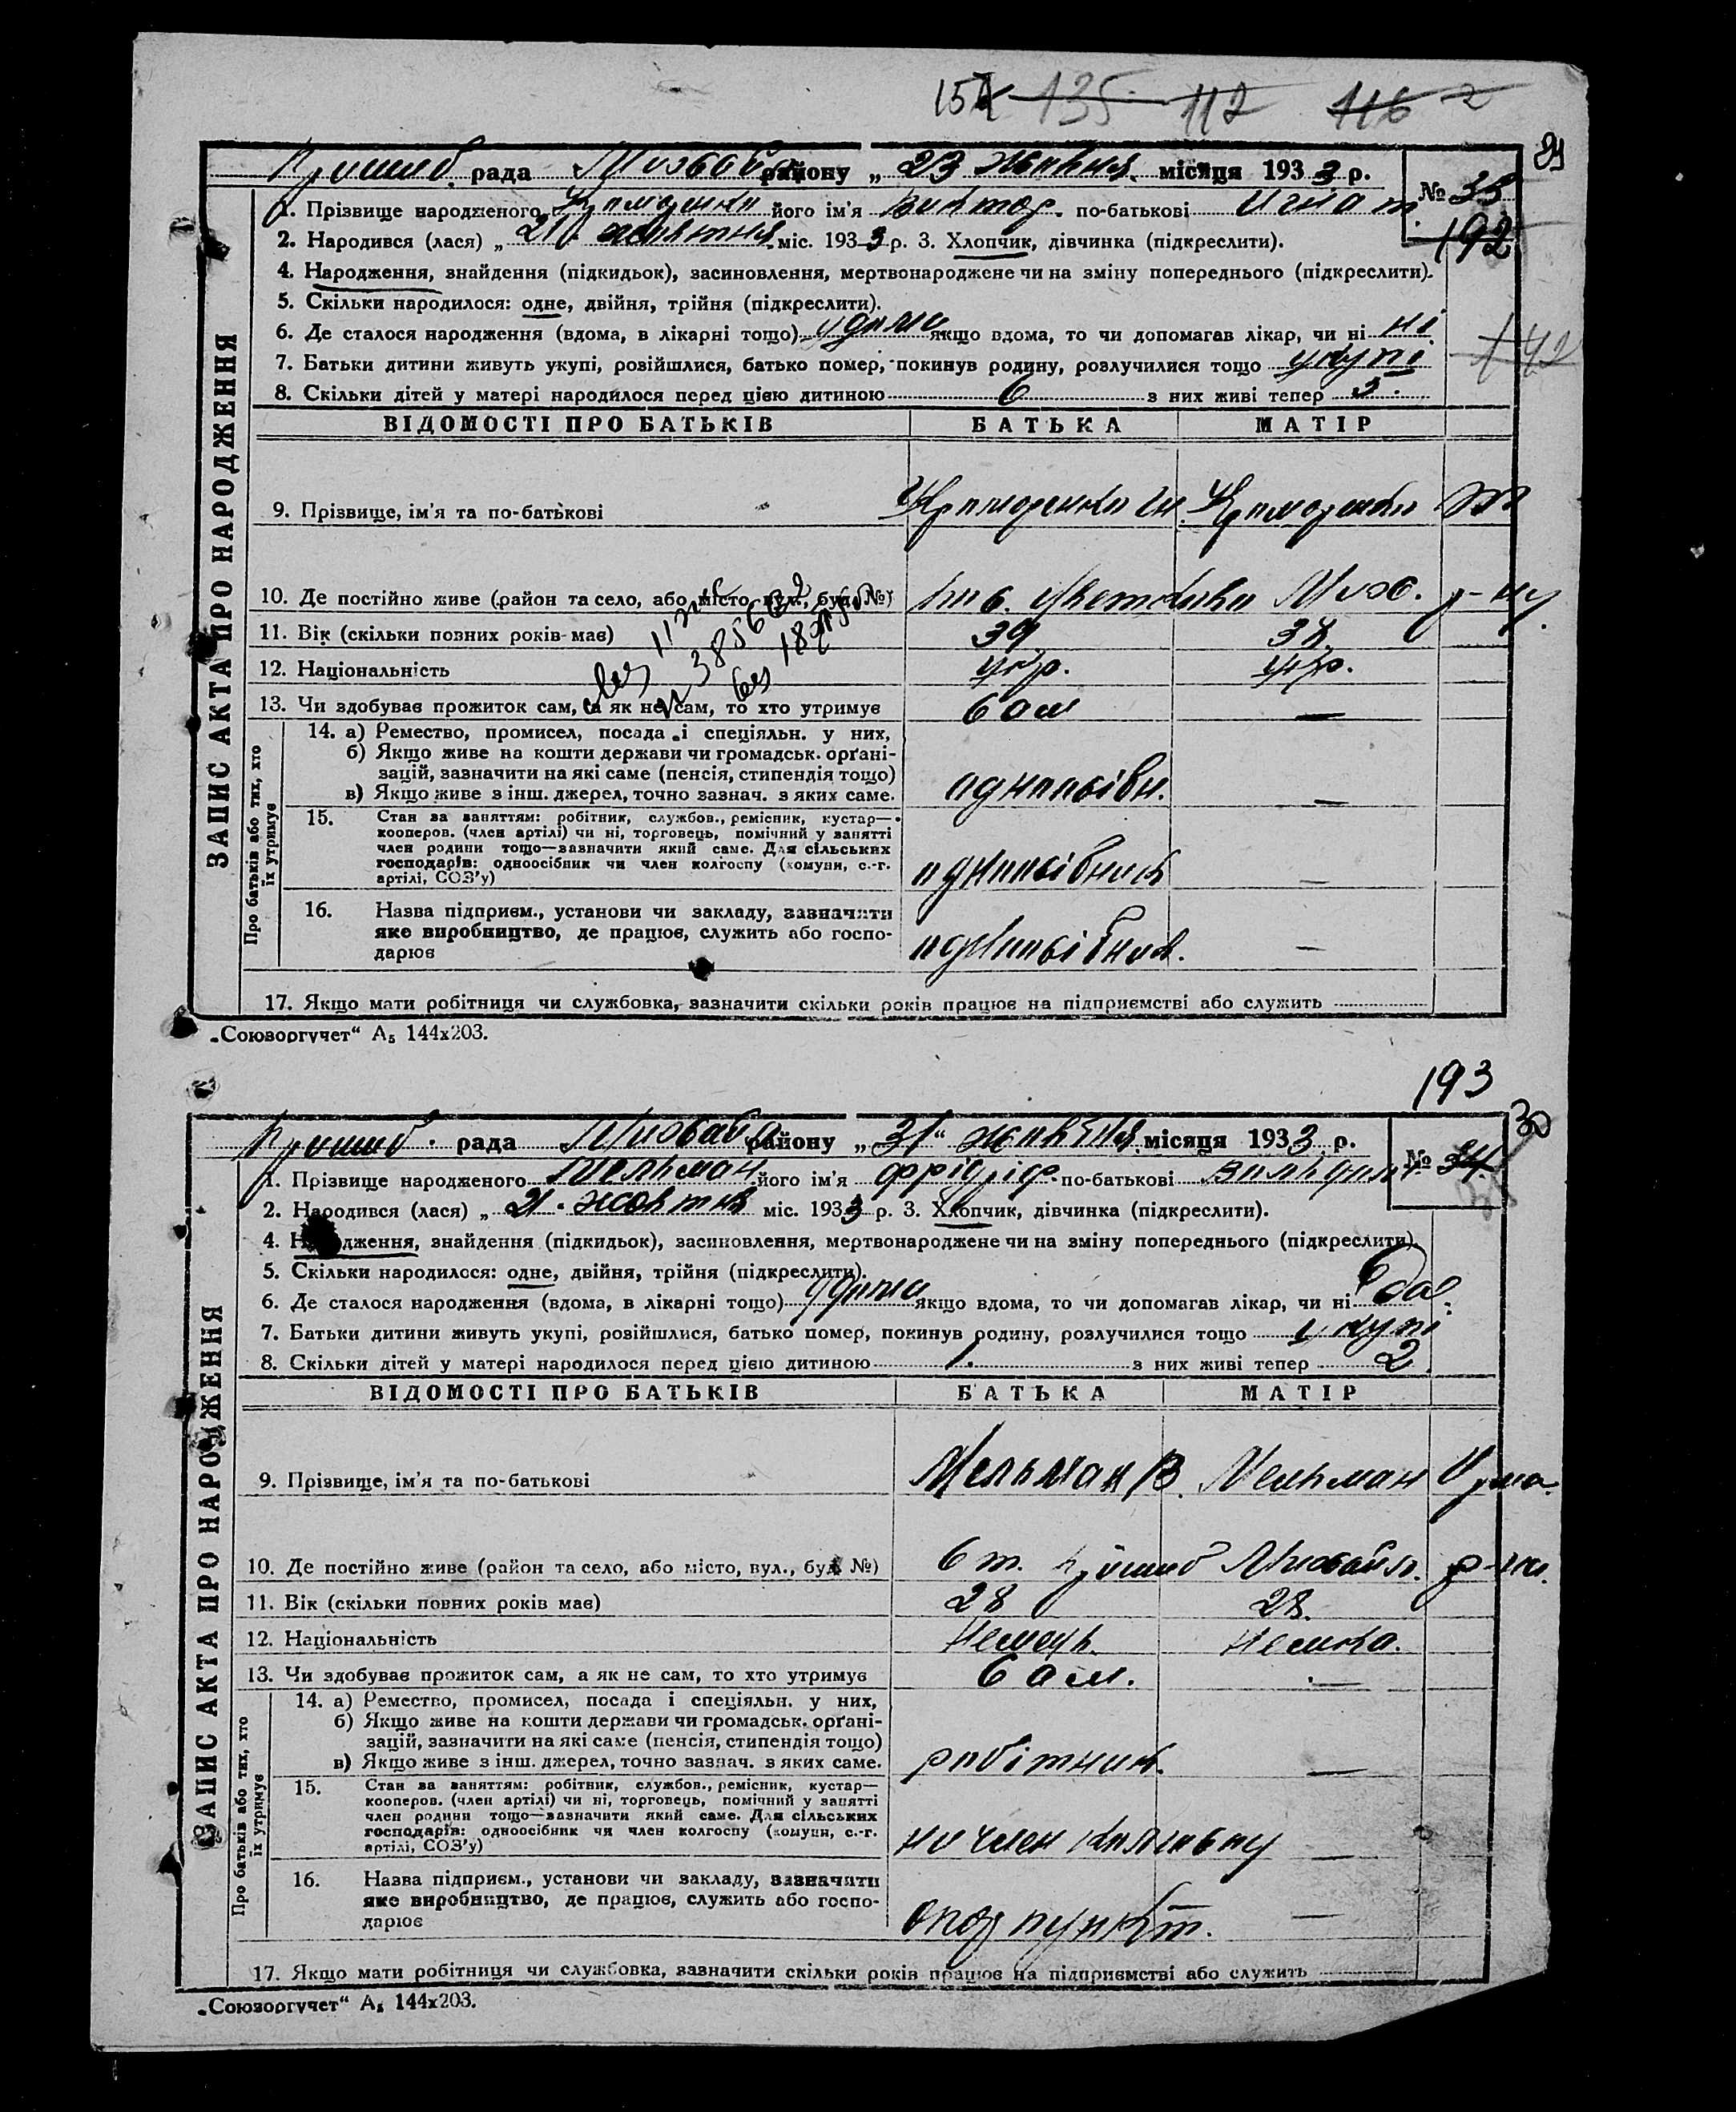 135 112 116 2
рада району „ 23 жовтня місяця 1933 р.
№ 35
192
1. Прізвище народженого його ім'я Виктор. по-батькові Игнат
2. Народився (лася) „ 21 жовтня міс. 1933 р. 3. Хлопчик, дівчинка (підкреслити).
4. Народження, знайдення (підкидьок), засиновлення, мертвонароджене чи на зміну попереднього (підкреслити).
5. Скільки народилося: одне, двійня, трійня (підкреслити).
6. Де сталося народження (вдома, в лікарні тощо) удома якщо вдома, то чи допомагав лікар, чи ні ні.
142
7. Батьки дитини живуть укупі, розійшлися, батько помер, покинув родину, розлучилися тощо укупі
8. Скільки дітей у матері народилося перед цією дитиною 6 з них живі тепер 5.
ВІДОМОСТІ ПРО БАТЬКІВ БАТЬКА МАТІР
9. Прізвище, ім'я та по-батькові
10. Де постійно живе (район та село, або місто, вул., буд. №) Мих. р-ну.
11. Вік (скільки повних років має) 39 38.
12. Національність укр. укр.
13. Чи здобуває прожиток сам, а як не сам, то хто утримує сам —
14. а) Ремество, промисел, посада і спеціяльн. у них,
б) Якщо живе на кошти держави чи громадськ. орґані-
зацій, зазначити на які саме (пенсія, стипендія тощо)
в) Якщо живе з інш. джерел, точно зазнач. з яких саме.
одноосібн. —
15. Стан за заняттям: робітник, службов., ремісник, кустар—
кооперов. (член артілі) чи ні, торговець, помічний у занятті
член родини тощо—зазначити який саме. Для сільських
господарів: одноосібник чи член колгоспу (комуни, с.-г.
артілі, СОЗ'у)
одноосібник —
16. Назва підприєм., установи чи закладу, зазначити
яке виробництво, де працює, служить або госпо-
дарює
одноосібник. —
17. Якщо мати робітниця чи службовка, зазначити скільки років працює на підприємстві або служить
ЗАПИС АКТА ПРО НАРОДЖЕННЯ
Про батьків або тих, хто
їх утримує
„Союзоргучет“ А₅ 144х203.
193
30
рада району „ 31 “ жовтня місяця 1933 р.
№ 34
1. Прізвище народженого Мельман його ім'я Фрідріф. по-батькові
2. Народився (лася) „ 21. жовтня міс. 1933 р. 3. Хлопчик, дівчинка (підкреслити).
4. Народження, знайдення (підкидьок), засиновлення, мертвонароджене чи на зміну попереднього (підкреслити).
5. Скільки народилося: одне, двійня, трійня (підкреслити).
6. Де сталося народження (вдома, в лікарні тощо) удома якщо вдома, то чи допомагав лікар, чи ні
7. Батьки дитини живуть укупі, розійшлися, батько помер, покинув родину, розлучилися тощо укупі
8. Скільки дітей у матері народилося перед цією дитиною 1. з них живі тепер 2
ВІДОМОСТІ ПРО БАТЬКІВ БАТЬКА МАТІР
9. Прізвище, ім'я та по-батькові Мельман В. Мельман Ирма.
10. Де постійно живе (район та село, або місто, вул., буд. №) ст. Пришиб Михайл. р-ну.
11. Вік (скільки повних років має) 28 28.
12. Національність Немець. Немка.
13. Чи здобуває прожиток сам, а як не сам, то хто утримує сам. —
14. а) Ремество, промисел, посада і спеціяльн. у них,
б) Якщо живе на кошти держави чи громадськ. орґані-
зацій, зазначити на які саме (пенсія, стипендія тощо)
в) Якщо живе з інш. джерел, точно зазнач. з яких саме.
робітник. —
15. Стан за заняттям: робітник, службов., ремісник, кустар—
кооперов. (член артілі) чи ні, торговець, помічний у занятті
член родини тощо—зазначити який саме. Для сільських
господарів: одноосібник чи член колгоспу (комуни, с.-г.
артілі, СОЗ'у)
не член колгоспу —
16. Назва підприєм., установи чи закладу, зазначити
яке виробництво, де працює, служить або госпо-
дарює
пункт. —
17. Якщо мати робітниця чи службовка, зазначити скільки років працює на підприємстві або служить
ЗАПИС АКТА ПРО НАРОДЖЕННЯ
Про батьків або тих, хто
їх утримує
„Союзоргучет“ А₅ 144х203.